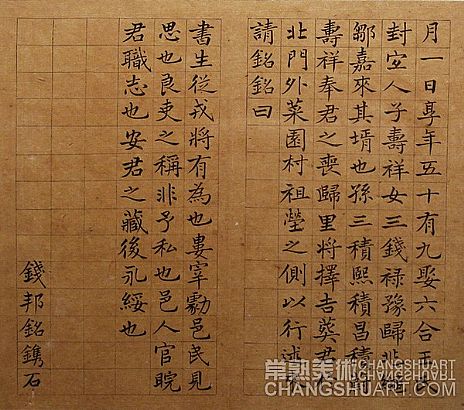 月一日享年五十有九娶六合王
封宜人子壽祥女三錢祿豫歸兆
鄒嘉來其壻也孫三積熙積昌積
壽祥奉君之喪歸里將擇吉葬君
北門外菜園村祖塋之側以行述
請銘銘曰
書生從戎將有為也婁宰勮邑民見
思也良吏之稱非予私也邑人官晥
君職志也安君之藏後永綏也
錢邦銘鐫石
常熟美術 CHANGSHUART
CHANGSHUART.COM